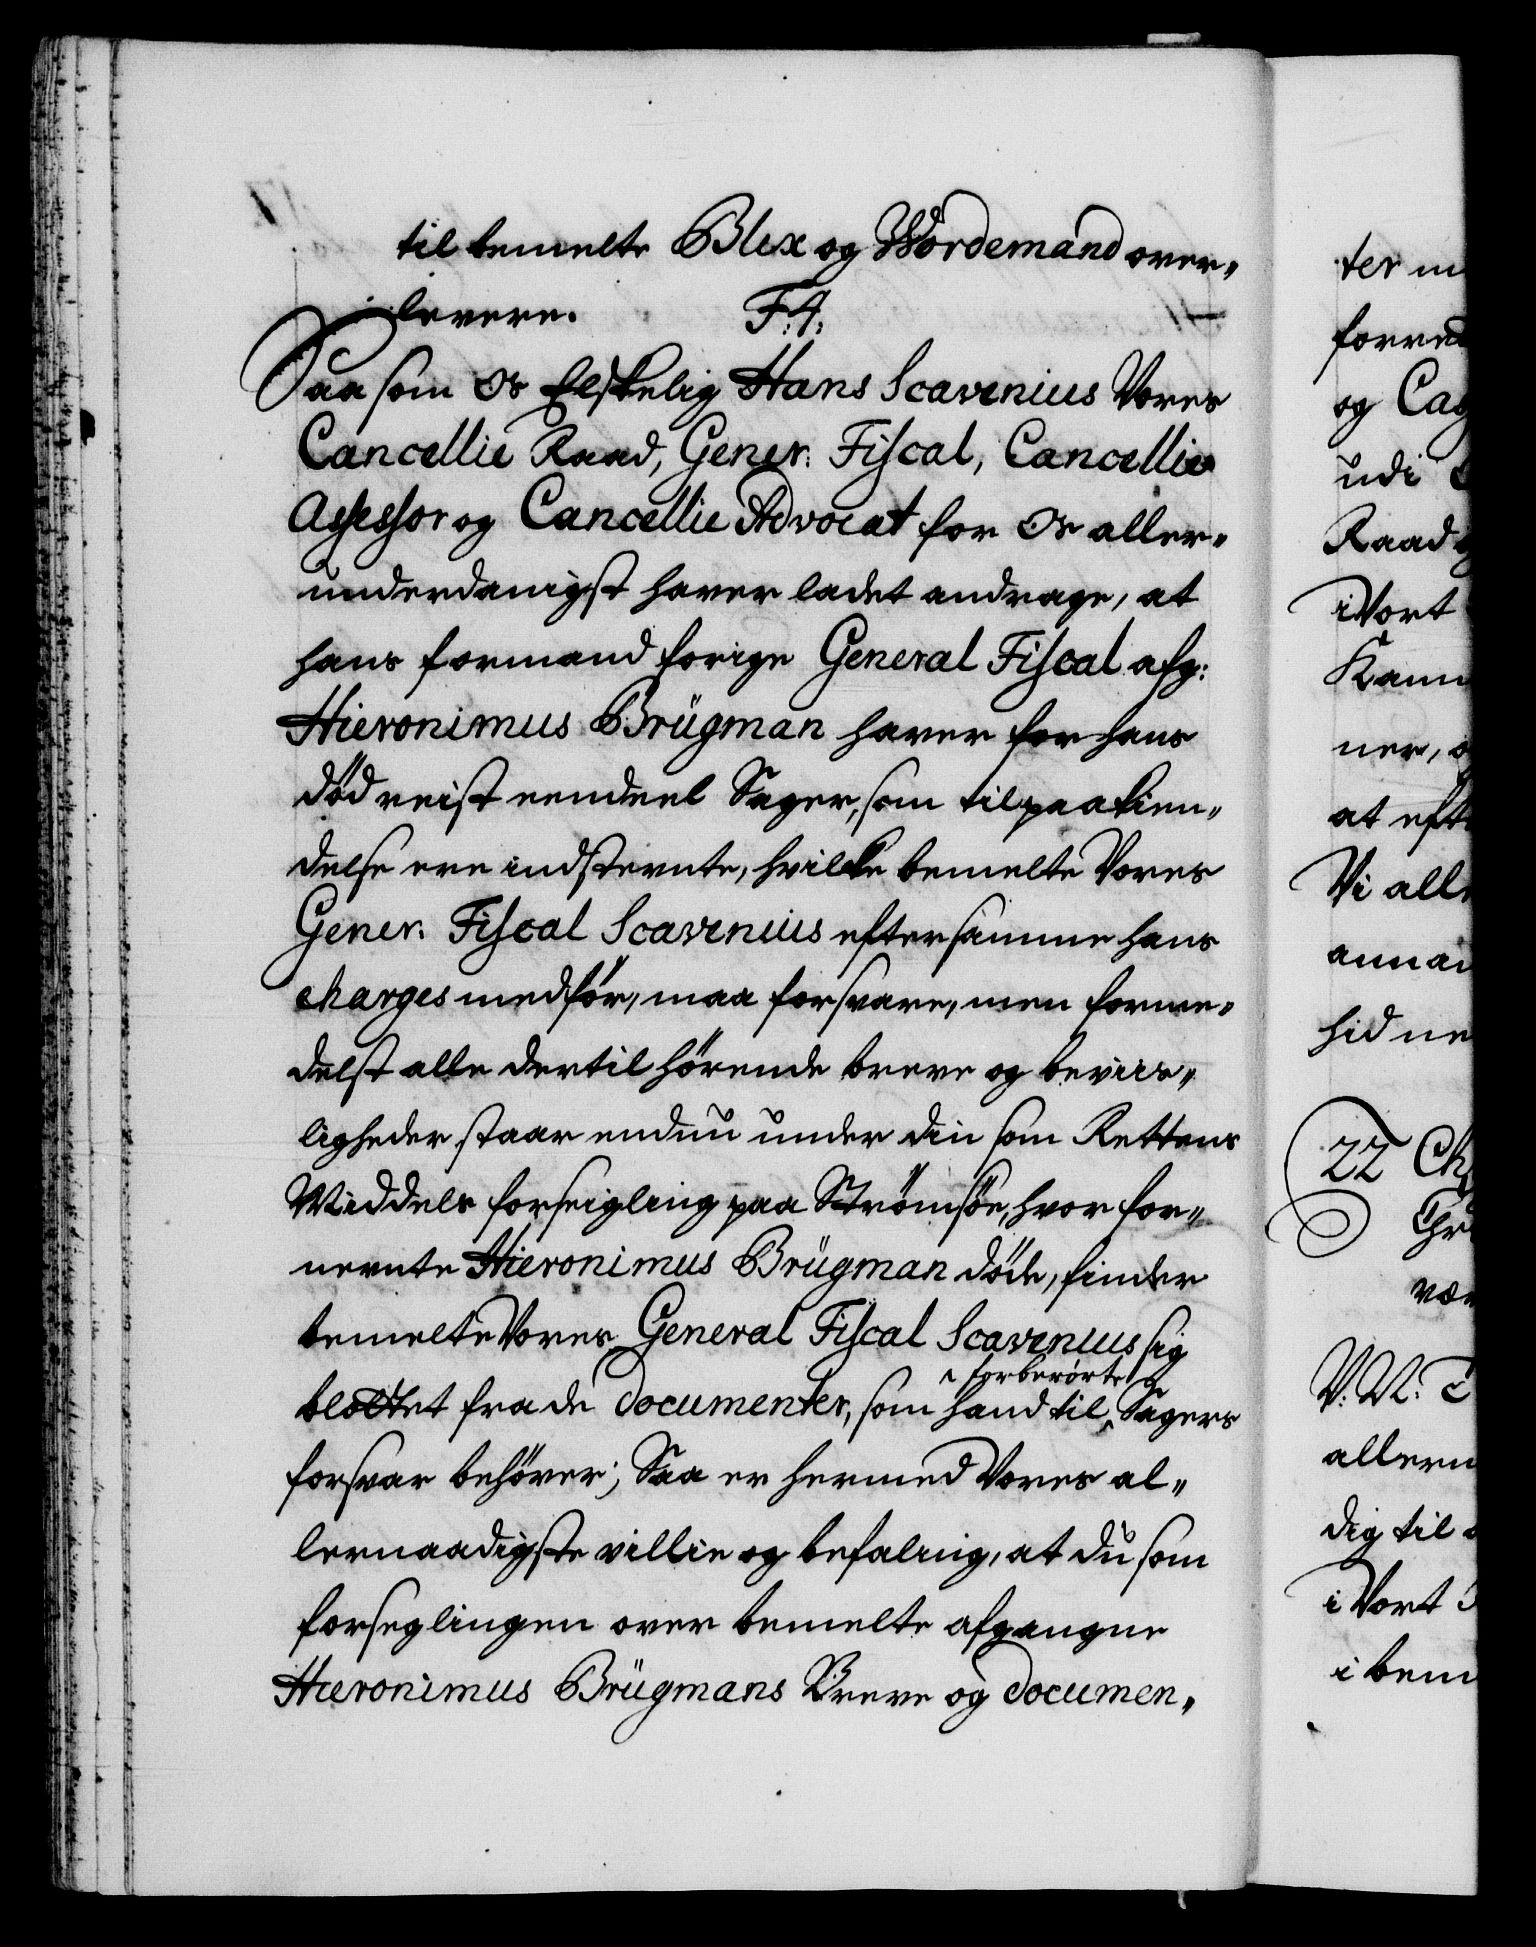 til bemelte Blix og Wordemand over„
levere. F. 4:
Saasom Os Elskelig Hans Scavenius Vores
Cancellie Raad, Gener: Fiscal, Cancellie
Assessor og Cancellie Advocat for Os aller„
underdanigst haver ladet andrage, at
hans formand forige General Fiscal afg:
Hieronimus Brügman haver for hans
död reist eendeel Sager, som til paakien„
delse ere indstevnte, hvilke bemelte Vores
Gener. Fiscal Scavenius efter samme hans
charges medför, maa forsvare, men forme„
delst alle dertil hörende breve og beviis„
ligheder staar endnu under din som Rettens
Middels forseigling paa Strömsöe, hvor for„
nevnte Hieronimus Brügman döde, finder
bemelte Vores General Fiscal Scavenius sig
blottet fra de documenter, som hand til forberörte Sagers
forsvar behöver; Saa er hermed Vores al„
lernaadigste villie og befaling, at du som
forseglingen over bemelte afgangne
Hieronimus Brügmans Breve og documen„
ter m
forre
og Cag
udi
Raad
i Vort
Kam
ner, o
at eft
Vi all
anna
hid ne
22 Ch
Chr
vær
V. M. T
allern
dig til
i Vort
i bem